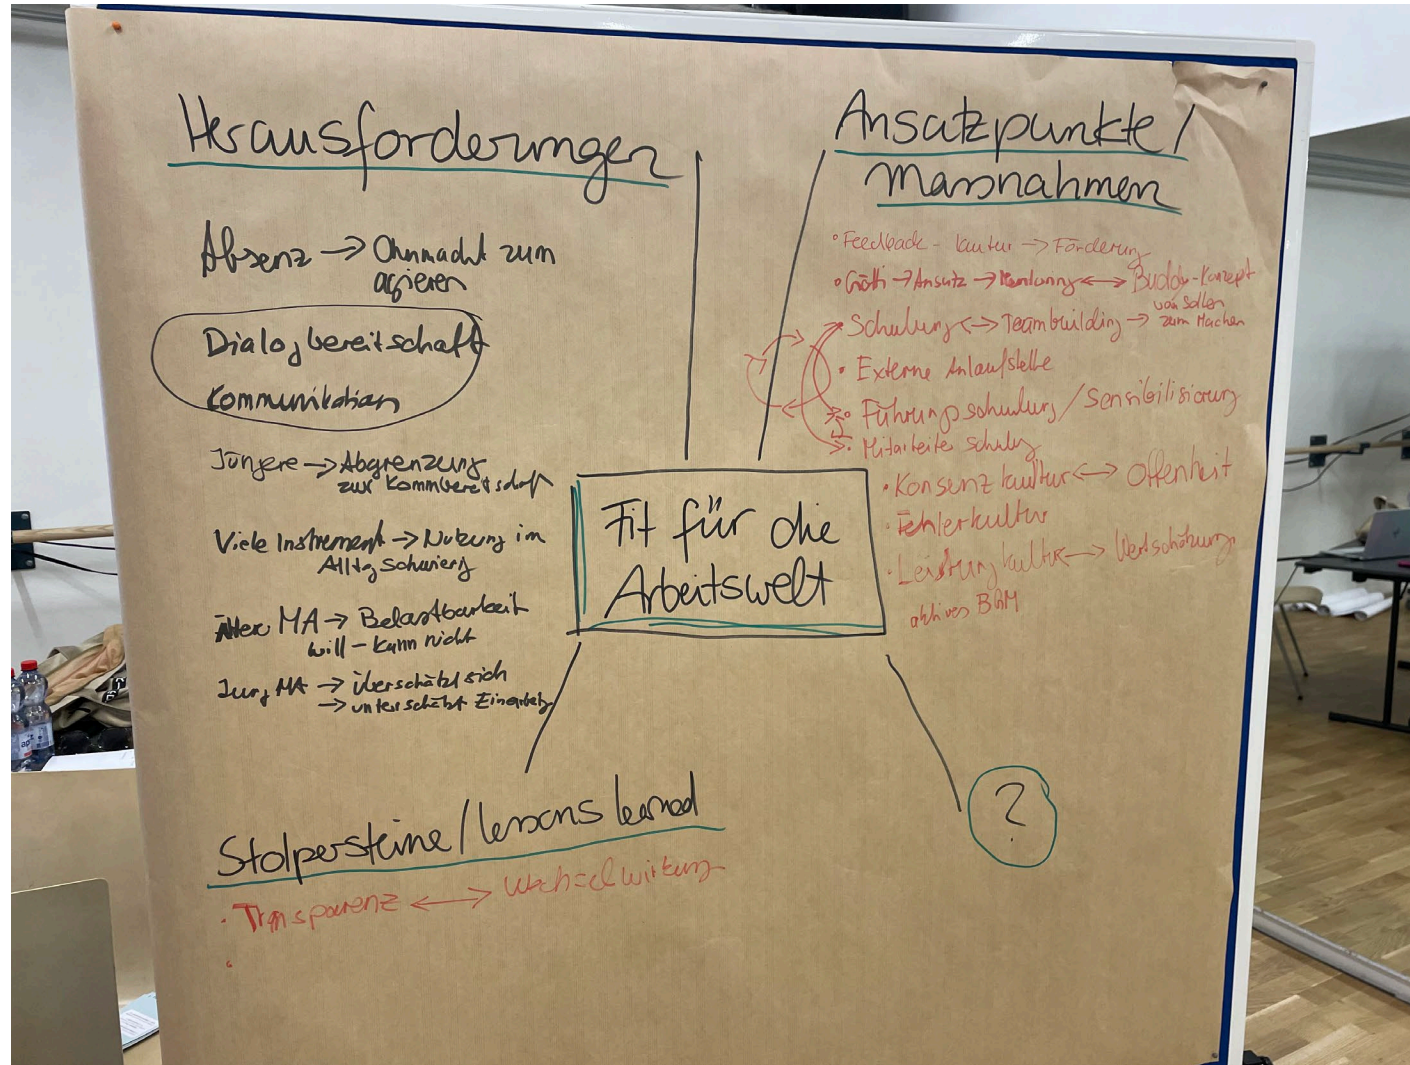 Herausforderungen
Absenz → Ohnmacht zum
agieren
Dialogbereitschaft
Kommunikation
Jüngere → Abgrenzung
zur Kommbereitschaft
Viele Instrument → Nutzung im
Alltg schwierg
Älter MA → Belastbarkeit
will - kann nicht
Jung MA → überschätzt sich
→ unterschätzt
Ansatzpunkte /
Massnahmen
• Feedback - kultur → Förderung
• Götti → Ansatz → ↔ Buddy-Konzept
von Sollen
zum Machen
Schulung ↔ Teambuilding →
• Externe Anlaufstelle
• Führungsschulung / Sensibilisierung
• Mitarbeiter schulg
• Konsenzkultur ↔ Offenheit
• Fehlerkultur
• Leistungkultur ↔ Wertschätzung
aktives BGM
Fit für die
Arbeitswelt
Stolpersteine / lessons learned
• Transparenz ↔ Wechselwirkung
?